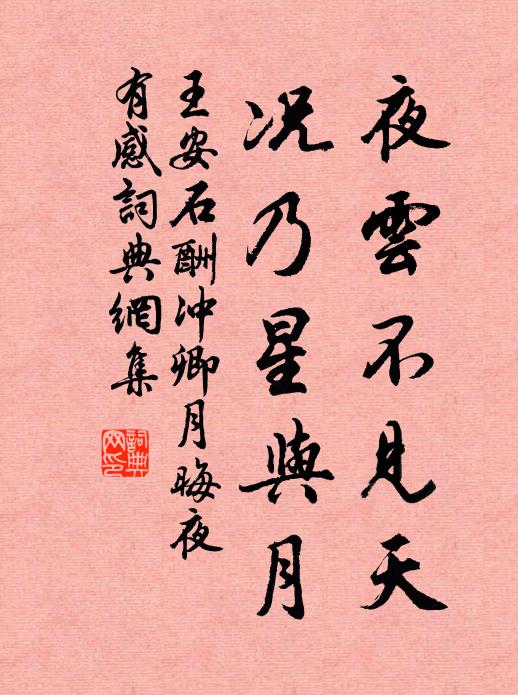 夜雲不見天
况乃星與月
王安石酬冲卿月晦夜
有感詞典網集
詞典網印